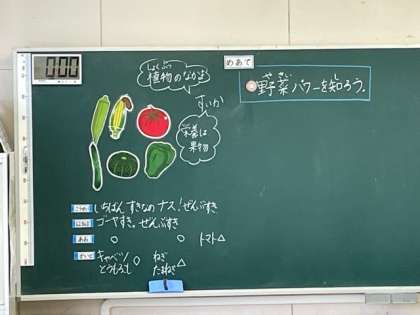 000
しょくぶつ
植物のなかま
めあて
やさい
野菜パワーを知ろう。
すいか
は
果物
いちばん すきなの ナス! ぜんぶすき
ゴーヤすき。ぜんぶすき
○ ○ トマト△
キャベツ
とうもろこし ○
ねぎ
たまねぎ △